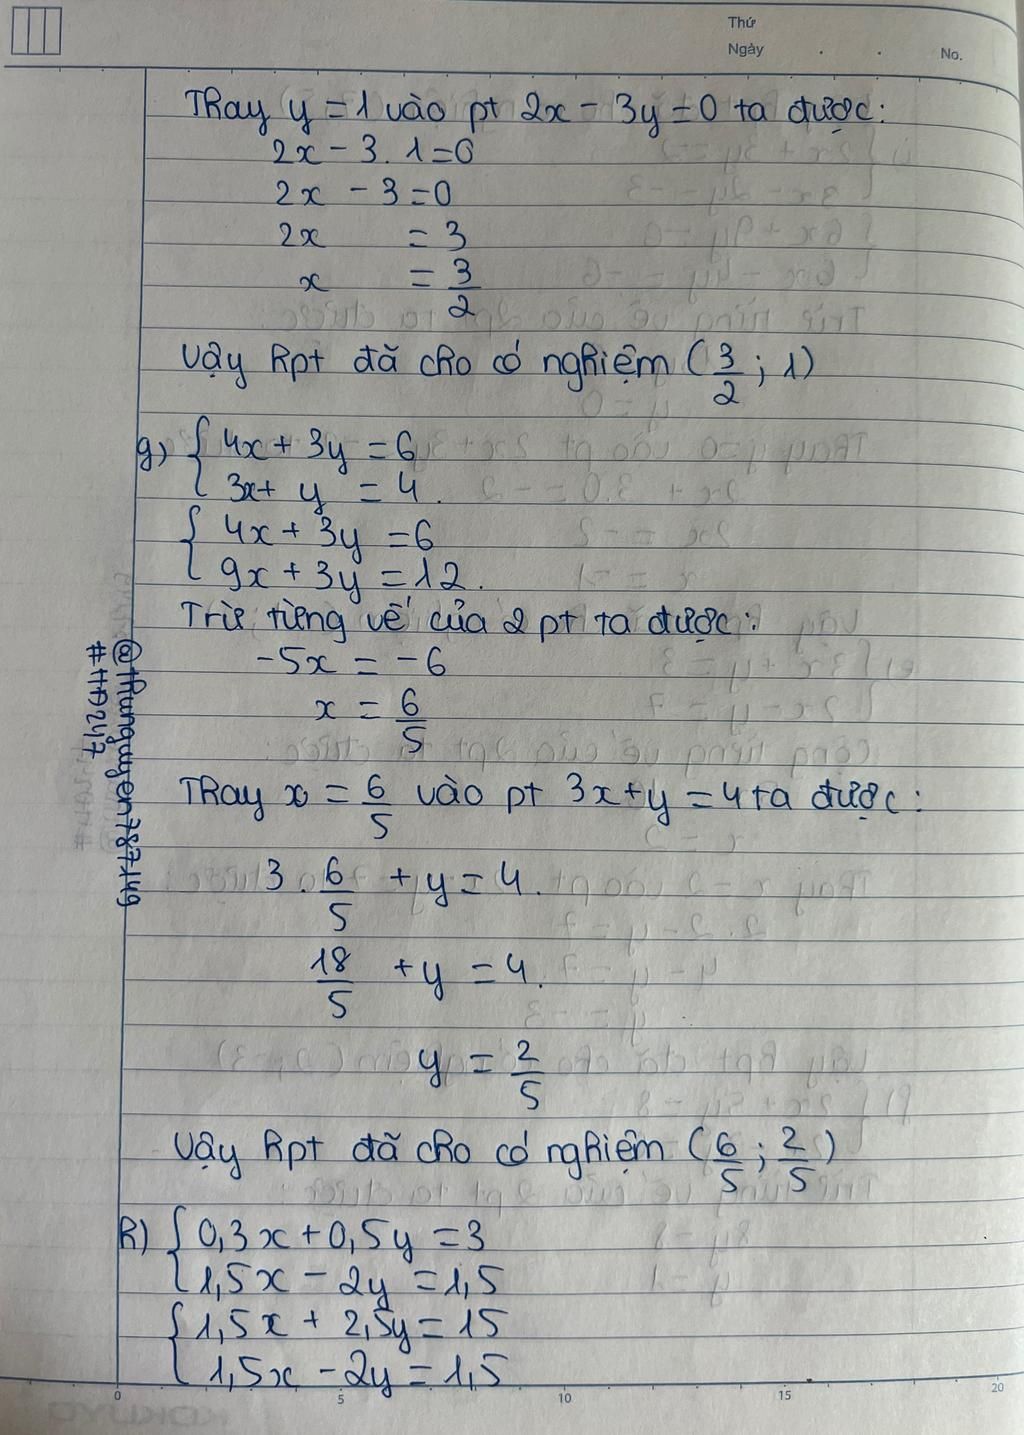 Thứ
Ngày . . No.
Thay y = 1 vào pt 2x - 3y = 0 ta được:
2x - 3. 1 = 0
2x - 3 = 0
2x = 3
x = 3/2
Vậy hpt đã cho có nghiệm (3/2; 1)
g) { 4x + 3y = 6
3x + y = 4.
{ 4x + 3y = 6
9x + 3y = 12.
Trừ từng vế của 2 pt ta được:
-5x = -6
x = 6/5
Thay x = 6/5 vào pt 3x + y = 4 ta được:
3. 6/5 + y = 4.
18/5 + y = 4.
y = 2/5
Vậy hpt đã cho có nghiệm (6/5; 2/5)
h) { 0,3x + 0,5y = 3
1,5x - 2y = 1,5
{ 1,5x + 2,5y = 15
1,5x - 2y = 1,5
0 5 10 15 20
#HĐ247